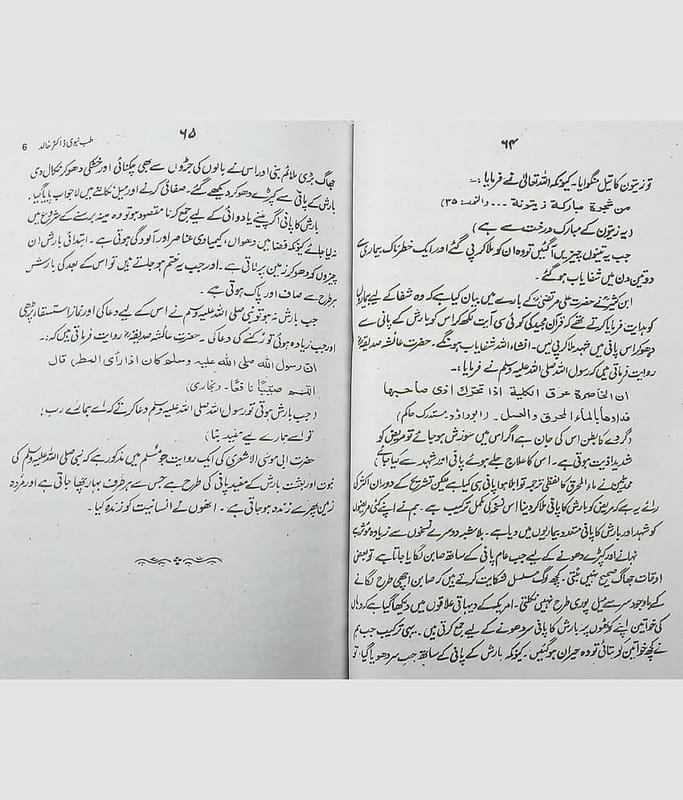 ۶۴
تو زیتون کا تیل منگوایا۔ کیونکہ اللہ تعالیٰ نے فرمایا :۔
من شجرة مباركة زيتونة ... (النور: ۳۵)
(یہ زیتون کے مبارک درخت سے ہے)
جب یہ تینوں چیزیں آگئیں تو وہ ان کو ملا کر پی گئے اور ایک خطرناک بیماری سے
دو تین دن میں شفایاب ہو گئے۔
ابن کثیر نے حضرت علی مرتضیٰ کے بارے میں بیان کیا ہے کہ وہ شفا کے لیے بیماروں
کو ہدایت فرمایا کرتے تھے کہ قرآن مجید کی کوئی سی آیت لکھ کر اس کو بارش کے پانی سے
دھو کر اس پانی میں شہد ملا کر پیں۔ انشاء اللہ شفایاب ہونگے۔ حضرت عائشہ صدیقہ
روایت فرماتی ہیں کہ رسول اللہ صلی اللہ علیہ وسلم نے فرمایا :۔
ان الخاصرة عرق الكلية اذا تحرك اذى صاحبها
فداوها بالماء المحرق والعسل۔ (ابوداؤد۔ مستدرک حاکم)
(گردے کا بطن اس کی جان ہے اگر اس میں سوزش ہو جائے تو مریض کو
شدید اذیت ہوتی ہے۔ اس کا علاج جلے ہوئے پانی اور شہد سے کیا جائے)
محدثین نے ماء المحرق کا لفظی ترجمہ تو ابلا ہوا پانی ہی کیا ہے لیکن تشریح کے دوران اکثر کی
رائے یہ ہے کہ مریض کو بارش کا پانی ملا کر دینا اس نسخہ کی مکمل ترکیب ہے۔ ہم نے اپنے کئی مریضوں
کو شہد اور بارش کا پانی متعدد بیماریوں میں دیا ہے۔ بلاشبہ دوسرے نسخوں سے زیادہ مؤثر
نہانے اور کپڑے دھونے کے لیے جب عام پانی کے ساتھ صابن لگایا جاتا ہے تو بعض
اوقات جھاگ صحیح نہیں بنتی۔ کچھ لوگ مسلسل شکایت کرتے ہیں کہ صابن اچھی طرح لگانے
کے باوجود سر سے میل پوری طرح نہیں نکلتی۔ امریکہ کے دیہاتی علاقوں میں دیکھا گیا ہے کہ وہاں
کی خواتین اپنے کوٹھوں پر بارش کا پانی سر دھونے کے لیے جمع کرتی ہیں۔ یہی ترکیب جب ہم
نے کچھ خواتین کو بتائی تو وہ حیران ہو گئیں۔ کیونکہ بارش کے پانی کے ساتھ جب سر دھویا گیا تو
۶۵
طب نبوی ڈاکٹر خالد 6
جھاگ بڑی ملائم بنی اور اس نے بالوں کی جڑوں سے بھی چکنائی اور خشکی دھو کر نکال دی
بارش کے پانی سے کپڑے دھو کر دیکھے گئے۔ صفائی کرنے اور میل نکالنے میں لاجواب پایا گیا۔
بارش کا پانی اگر پینے یا دوائی کے لیے جمع کرنا مقصود ہو تو وہ مینہ برسنے کے شروع میں
نہ لیا جائے کیونکہ فضا میں دھواں، کیمیاوی عناصر اور آلودگی ہوتی ہے۔ ابتدائی بارش ان
چیزوں کو دھو کر زمین پر لاتی ہے۔ اور جب یہ ختم ہو جاتے ہیں تو اس کے بعد کی بارش
ہر طرح سے صاف اور پاک ہوتی ہے۔
جب بارش نہ ہو تو نبی صلی اللہ علیہ وسلم نے اس کے لیے دعا کی اور نماز استسقاء پڑھی
اور جب زیادہ ہوئی تو رکنے کی دعا کی۔ حضرت عائشہ صدیقہ روایت فرماتی ہیں کہ :۔
ان رسول الله صلى الله عليه وسلم كان اذا رأى المطر قال
اللهم صيبًا نافعًا۔ (بخاری)
(جب بارش ہوتی تو رسول اللہ صلی اللہ علیہ وسلم دعا کرتے کہ اے ہمارے رب!
تو اسے ہمارے لیے مفید بنا)
حضرت ابی موسیٰ الاشعری کی ایک روایت جو مسلم میں مذکور ہے کہ نبی صلی اللہ علیہ وسلم کی
نبوت اور بعثت بارش کے مفید پانی کی طرح ہے جس سے ہر طرف بہار بچھا جاتی ہے اور مردہ
زمین پھر سے زندہ ہو جاتی ہے۔ انھوں نے انسانیت کو زندہ کیا۔